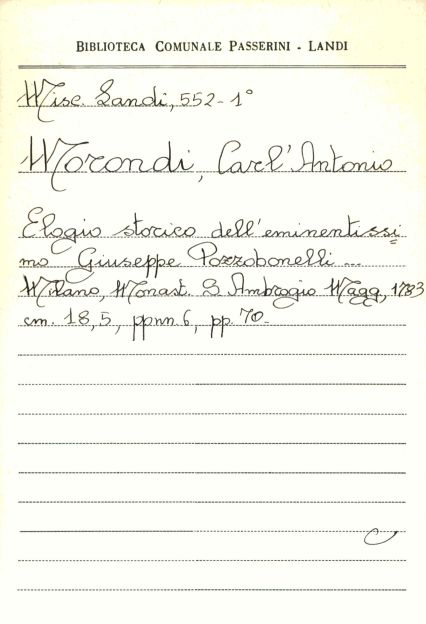 BIBLIOTECA COMUNALE PASSERINI - LANDI
Misc. Landi, 552-1°
Morondi, Carl'Antonio
Elogio storico dell'eminentissi=
mo Giuseppe Pozzobonelli ...
Milano, Monast. S Ambrogio Magg., 1783
cm. 18,5, ppnn. 6, pp. 70.